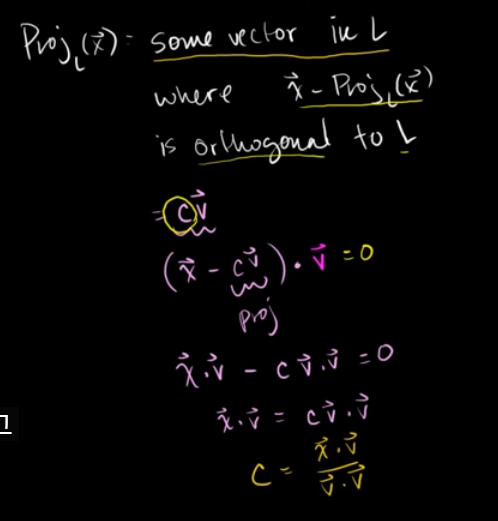 Proj_L(x⃗) = some vector in L
where x⃗ - Proj_L(x⃗)
is orthogonal to L
= cv⃗
(x⃗ - cv⃗) · v⃗ = 0
proj
x⃗·v⃗ - c v⃗·v⃗ = 0
x⃗·v⃗ = c v⃗·v⃗
c = x⃗·v⃗ / v⃗·v⃗